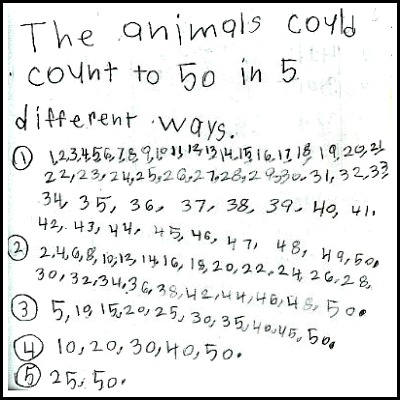 The animals could
count to 50 in 5
different ways.
① 1,2,3,4,5,6,7,8,9,10,11,12,13,14,15,16,17,18,19,20,21
22,23,24,25,26,27,28,29,30,31,32,33
34, 35, 36, 37, 38, 39, 40, 41,
42, 43, 44, 45, 46, 47, 48, 49, 50.
② 2,4,6,8,10,12,14,16,18,20,22,24,26,28,
30,32,34,36,38,42,44,46,48,50.
③ 5,10,15,20,25,30,35,40,45,50.
④ 10,20,30,40,50.
⑤ 25, 50.